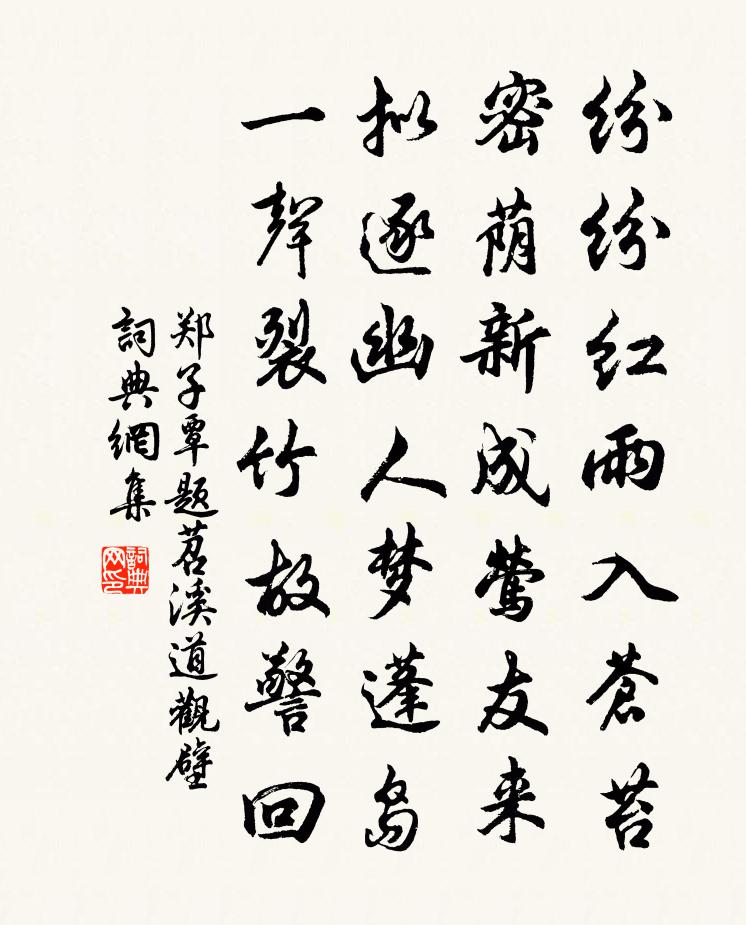 纷纷红雨入苍苔
密荫新成莺友来
拟逐幽人梦蓬岛
一声裂竹故警回
郑子覃题苕溪道觀壁
詞典網集
詞典网印